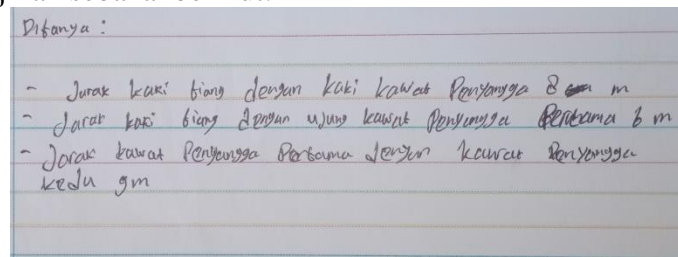 Ditanya :
- Jarak kaki tiang dengan kaki kawat Penyangga 8 m
- Jarak kaki tiang dengan ujung kawat Penyangga Pertama 6 m
- Jarak kawat Penyangga Pertama dengan kawat Penyangga
kedu 9m